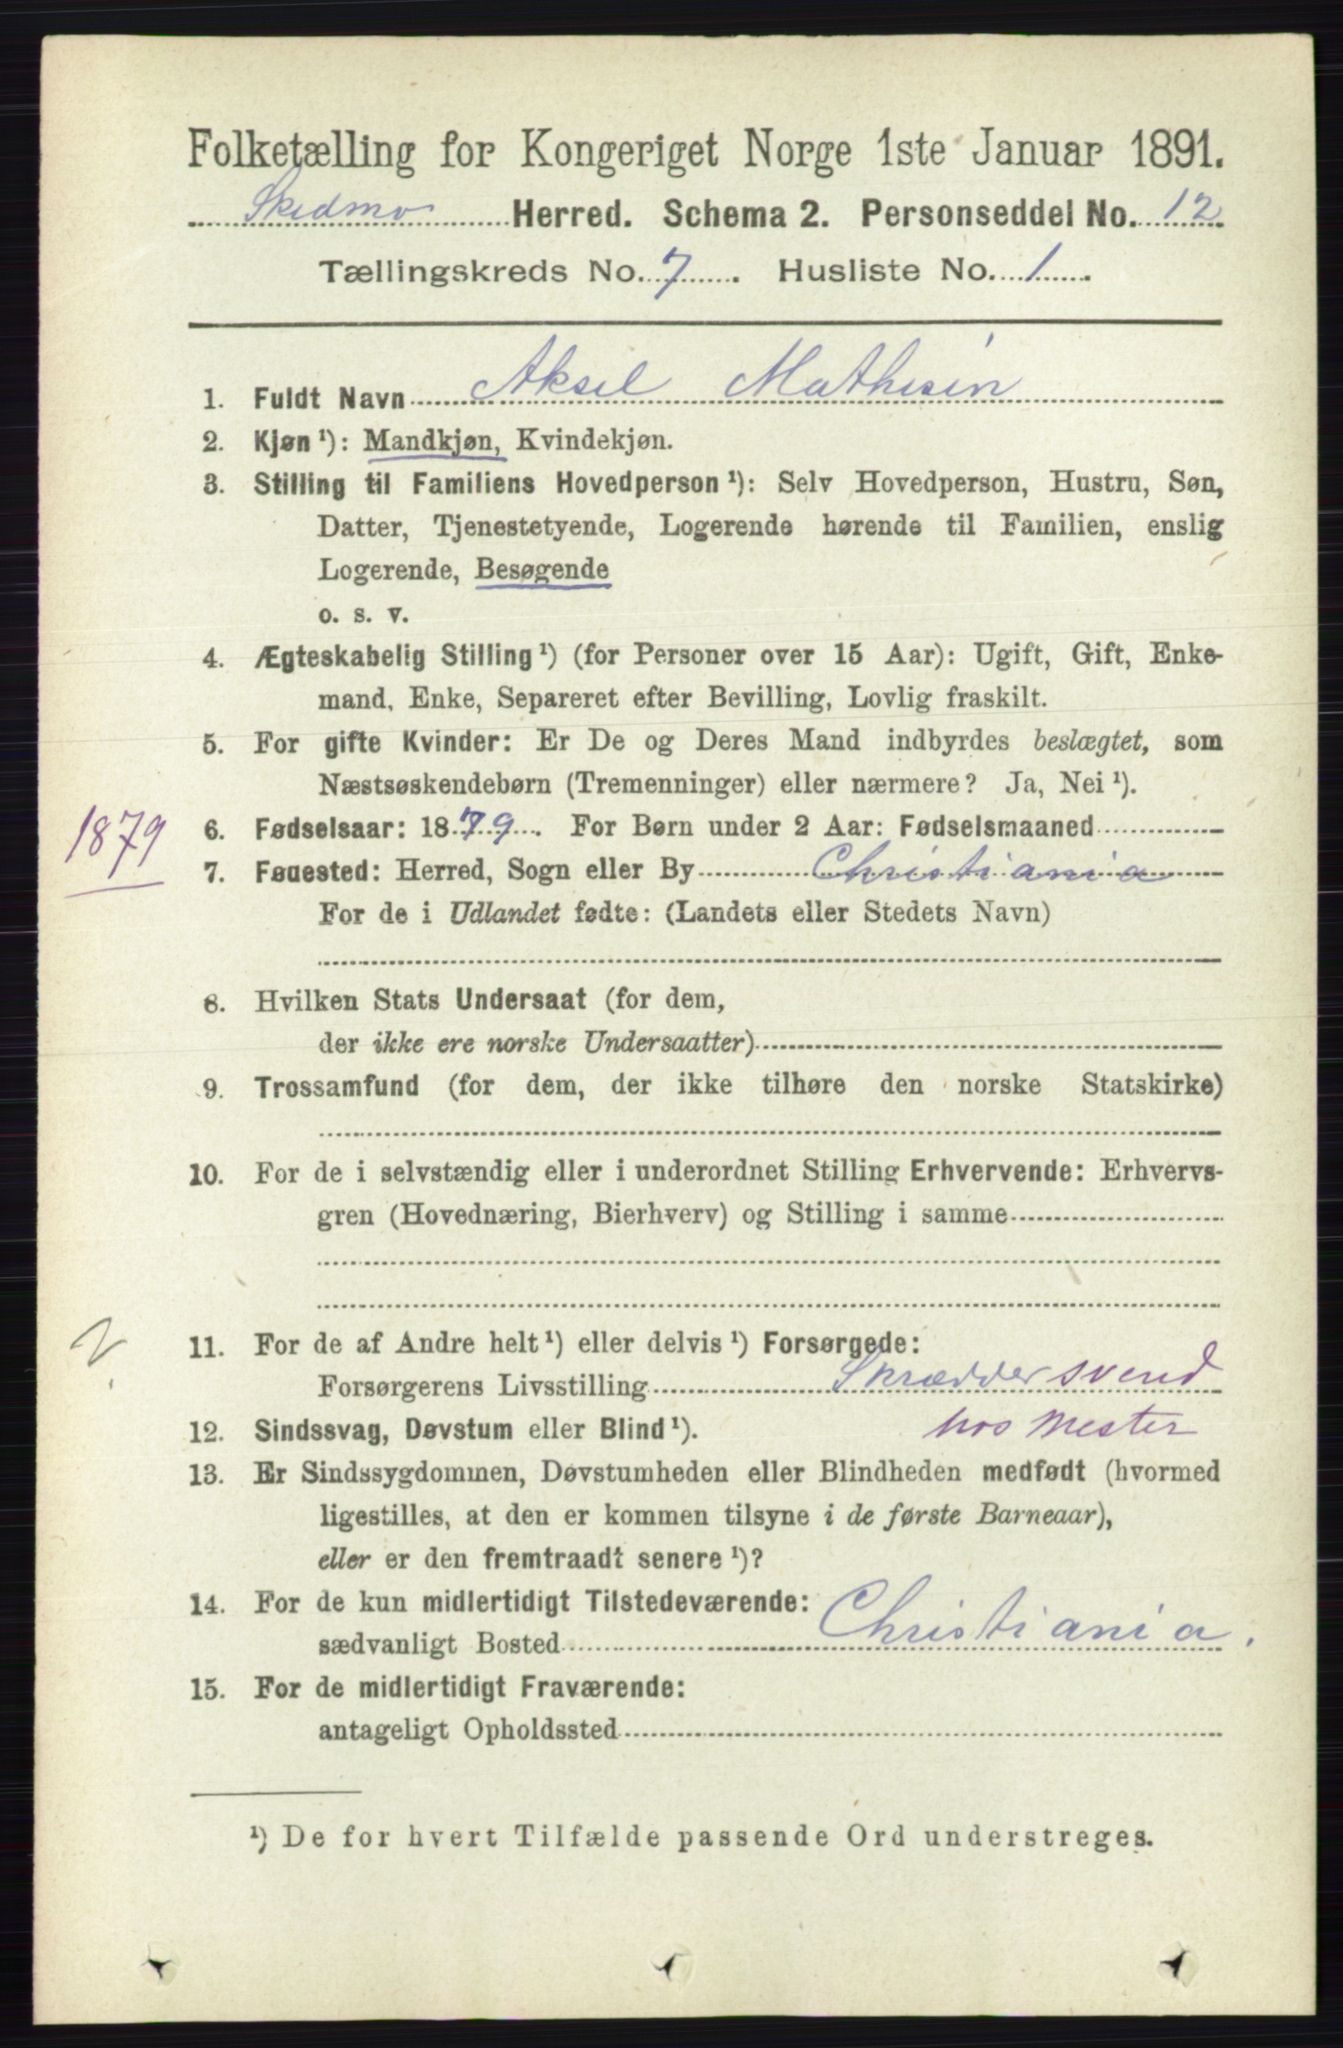 Folketælling for Kongeriget Norge 1ste Januar 1891.
Skedmo Herred. Schema 2. Personseddel No. 12
Tællingskreds No. 7. Husliste No. 1.
1. Fuldt Navn Aksel Mathisen
2. Kjøn ¹): Mandkjøn, Kvindekjøn.
3. Stilling til Familiens Hovedperson ¹): Selv Hovedperson, Hustru, Søn,
Datter, Tjenestetyende, Logerende hørende til Familien, enslig
Logerende, Besøgende
o. s. v.
4. Ægteskabelig Stilling ¹) (for Personer over 15 Aar): Ugift, Gift, Enke-
mand, Enke, Separeret efter Bevilling, Lovlig fraskilt.
5. For gifte Kvinder: Er De og Deres Mand indbyrdes beslægtet, som
Næstsøskendebørn (Tremenninger) eller nærmere? Ja, Nei ¹).
1879 6. Fødselsaar: 1879. For Børn under 2 Aar: Fødselsmaaned
7. Føuested: Herred, Sogn eller By Christiania
For de i Udlandet fødte: (Landets eller Stedets Navn)
8. Hvilken Stats Undersaat (for dem,
der ikke ere norske Undersaatter)
9. Trossamfund (for dem, der ikke tilhøre den norske Statskirke)
10. For de i selvstændig eller i underordnet Stilling Erhvervende: Erhvervs-
gren (Hovednæring, Bierhverv) og Stilling i samme
2. 11. For de af Andre helt ¹) eller delvis ¹) Forsørgede:
Forsørgerens Livsstilling Skræddersvend
hos Mester
12. Sindssvag, Døvstum eller Blind ¹).
13. Er Sindssygdommen, Døvstumheden eller Blindheden medfødt (hvormed
ligestilles, at den er kommen tilsyne i de første Barneaar),
eller er den fremtraadt senere ¹)?
14. For de kun midlertidigt Tilstedeværende:
sædvanligt Bosted Christiania.
15. For de midlertidigt Fraværende:
antageligt Opholdssted
¹) De for hvert Tilfælde passende Ord understreges.